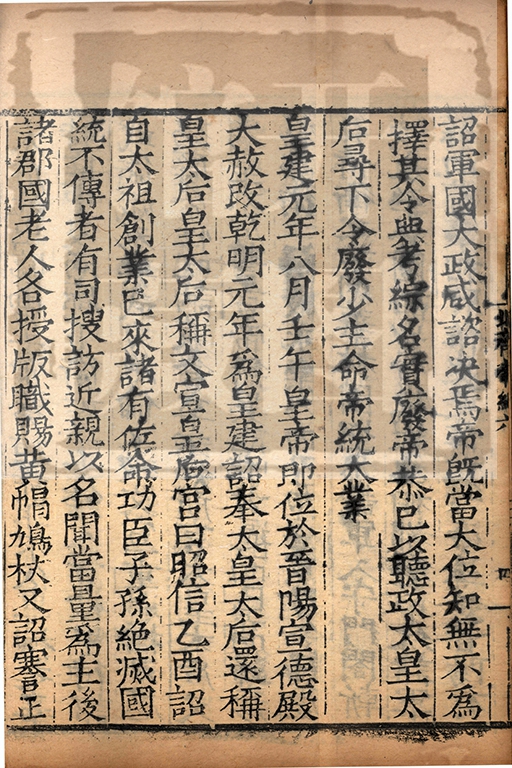 詔軍國大政咸諮决焉帝旣當大位知無不爲
擇其令典考綜名實廢帝恭已以聽政太皇太
后尋下令廢少主命帝統大業
皇建元年八月壬午皇帝即位於晉陽宣德殿
大赦改乾明元年爲皇建詔奉太皇太后還稱
皇太后皇太后稱文宣皇后宮曰昭信乙酉詔
自太祖創業已來諸有佐命功臣子孫絶滅國
統不傳者有司搜訪近親以名聞當量爲主後
諸郡國老人各授版職賜黄帽鳩杖又詔謇正